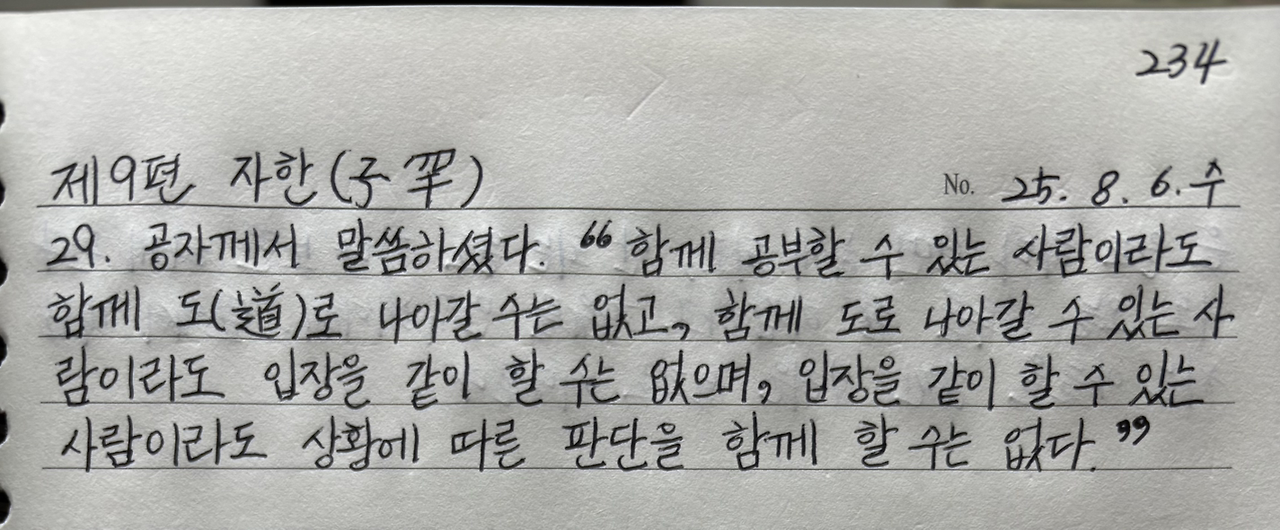 234
제9편 자한(子罕)
No. 25. 8. 6. 수
29. 공자께서 말씀하셨다. “함께 공부할 수 있는 사람이라도
함께 도(道)로 나아갈 수는 없고, 함께 도로 나아갈 수 있는 사
람이라도 입장을 같이 할 수는 없으며, 입장을 같이 할 수 있는
사람이라도 상황에 따른 판단을 함께 할 수는 없다.”